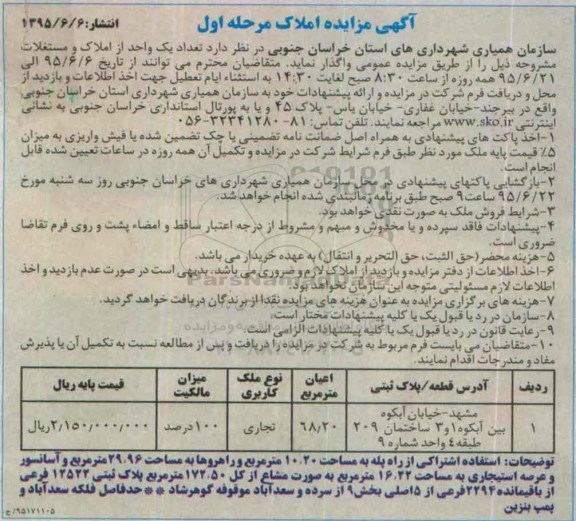 آگهی مزایده املاک مرحله اول
انتشار:۱۳۹۵/۶/۶
سازمان همیاری شهرداری های استان خراسان جنوبی در نظر دارد تعداد یک واحد از املاک و مستغلات
مشروحه ذیل را از طریق مزایده عمومی واگذار نماید. متقاضیان محترم می توانند از تاریخ ۹۵/۶/۶ الی
۹۵/۶/۲۱ همه روزه از ساعت ۸:۳۰ صبح لغایت ۱۴:۳۰ به استثناء ایام تعطیل جهت اخذ اطلاعات و بازدید از
محل و دریافت فرم شرکت در مزایده و ارائه پیشنهادات خود به سازمان همیاری شهرداری استان خراسان جنوبی
واقع در بیرجند-خیابان غفاری- خیابان یاس- پلاک ۴۵ و یا به پورتال استانداری خراسان جنوبی به نشانی
اینترنتی www.sko.ir مراجعه نمایند. تلفن تماس: ۸۱-۰۵۶-۳۲۳۴۱۲۸۰
۱-اخذ پاکت های پیشنهادی به همراه اصل ضمانت نامه تضمینی یا چک تضمین شده یا فیش واریزی به میزان
۵٪ قیمت پایه ملک مورد نظر طبق فرم شرایط شرکت در مزایده و تکمیل آن همه روزه در ساعات تعیین شده قابل
انجام است.
۲-بازگشایی پاکتهای پیشنهادی در محل سازمان همیاری شهرداری های خراسان جنوبی روز سه شنبه مورخ
۹۵/۶/۲۲ ساعت۹ صبح طبق برنامه زمانبندی شده انجام خواهد شد.
۳-شرایط فروش ملک به صورت نقدی خواهد بود.
۴-پیشنهادات فاقد سپرده و یا مخدوش و مبهم و مشروط از درجه اعتبار ساقط و امضاء پشت و روی فرم تقاضا
ضروری است.
۵-هزینه محضر(حق الثبت، حق التحریر و انتقال) به عهده خریدار می باشد.
۶-اخذ اطلاعات از دفتر مزایده و بازدید از املاک لازم و ضروری می باشد. بدیهی است در صورت عدم بازدید و اخذ
اطلاعات لازم مسئولیتی متوجه این سازمان نخواهد بود.
۷-هزینه های برگزاری مزایده به عنوان هزینه های مزایده نقدا از برندگان دریافت خواهد گردید.
۸-سازمان در رد یا قبول یک یا کلیه پیشنهادات مختار است.
۹-رعایت قانون در رد یا قبول یک یا کلیه پیشنهادات الزامی است.
۱۰-متقاضیان می بایست فرم مربوط به شرکت در مزایده را دریافت و پس از مطالعه نسبت به تکمیل آن یا پذیرش
مفاد و مندرجات اقدام نمایند.
ردیف آدرس قطعه/پلاک ثبتی اعیان مترمربع نوع ملک کاربری میزان مالکیت قیمت پایه ریال
۱ مشهد-خیابان آبکوه
بین آبکوه۱ و۳ ساختمان ۲۰۹ ۶۸/۲۰ تجاری ۱۰۰درصد ۲/۱۵۰/۰۰۰/۰۰۰ریال
طبقه۴ واحد شماره ۹
توضیحات: استفاده اشتراکی از راه پله به مساحت ۱۰.۲۰ مترمربع و راهروها به مساحت ۲۹.۹۶مترمربع و آسانسور
و عرصه استیجاری به مساحت ۱۶.۲۳ مترمربع به صورت مشاع از کل ۱۷۲.۵۰ مترمربع پلاک ثبتی ۱۳۵۲۲ فرعی
از باقیمانده ۲۲۹۴فرعی از ۵اصلی بخش۹ از سرده و سعدآباد موقوفه گوهرشاد **حدفاصل فلکه سعدآباد و
پمپ بنزین
۹۵۱۷۱۱۰۵/ج